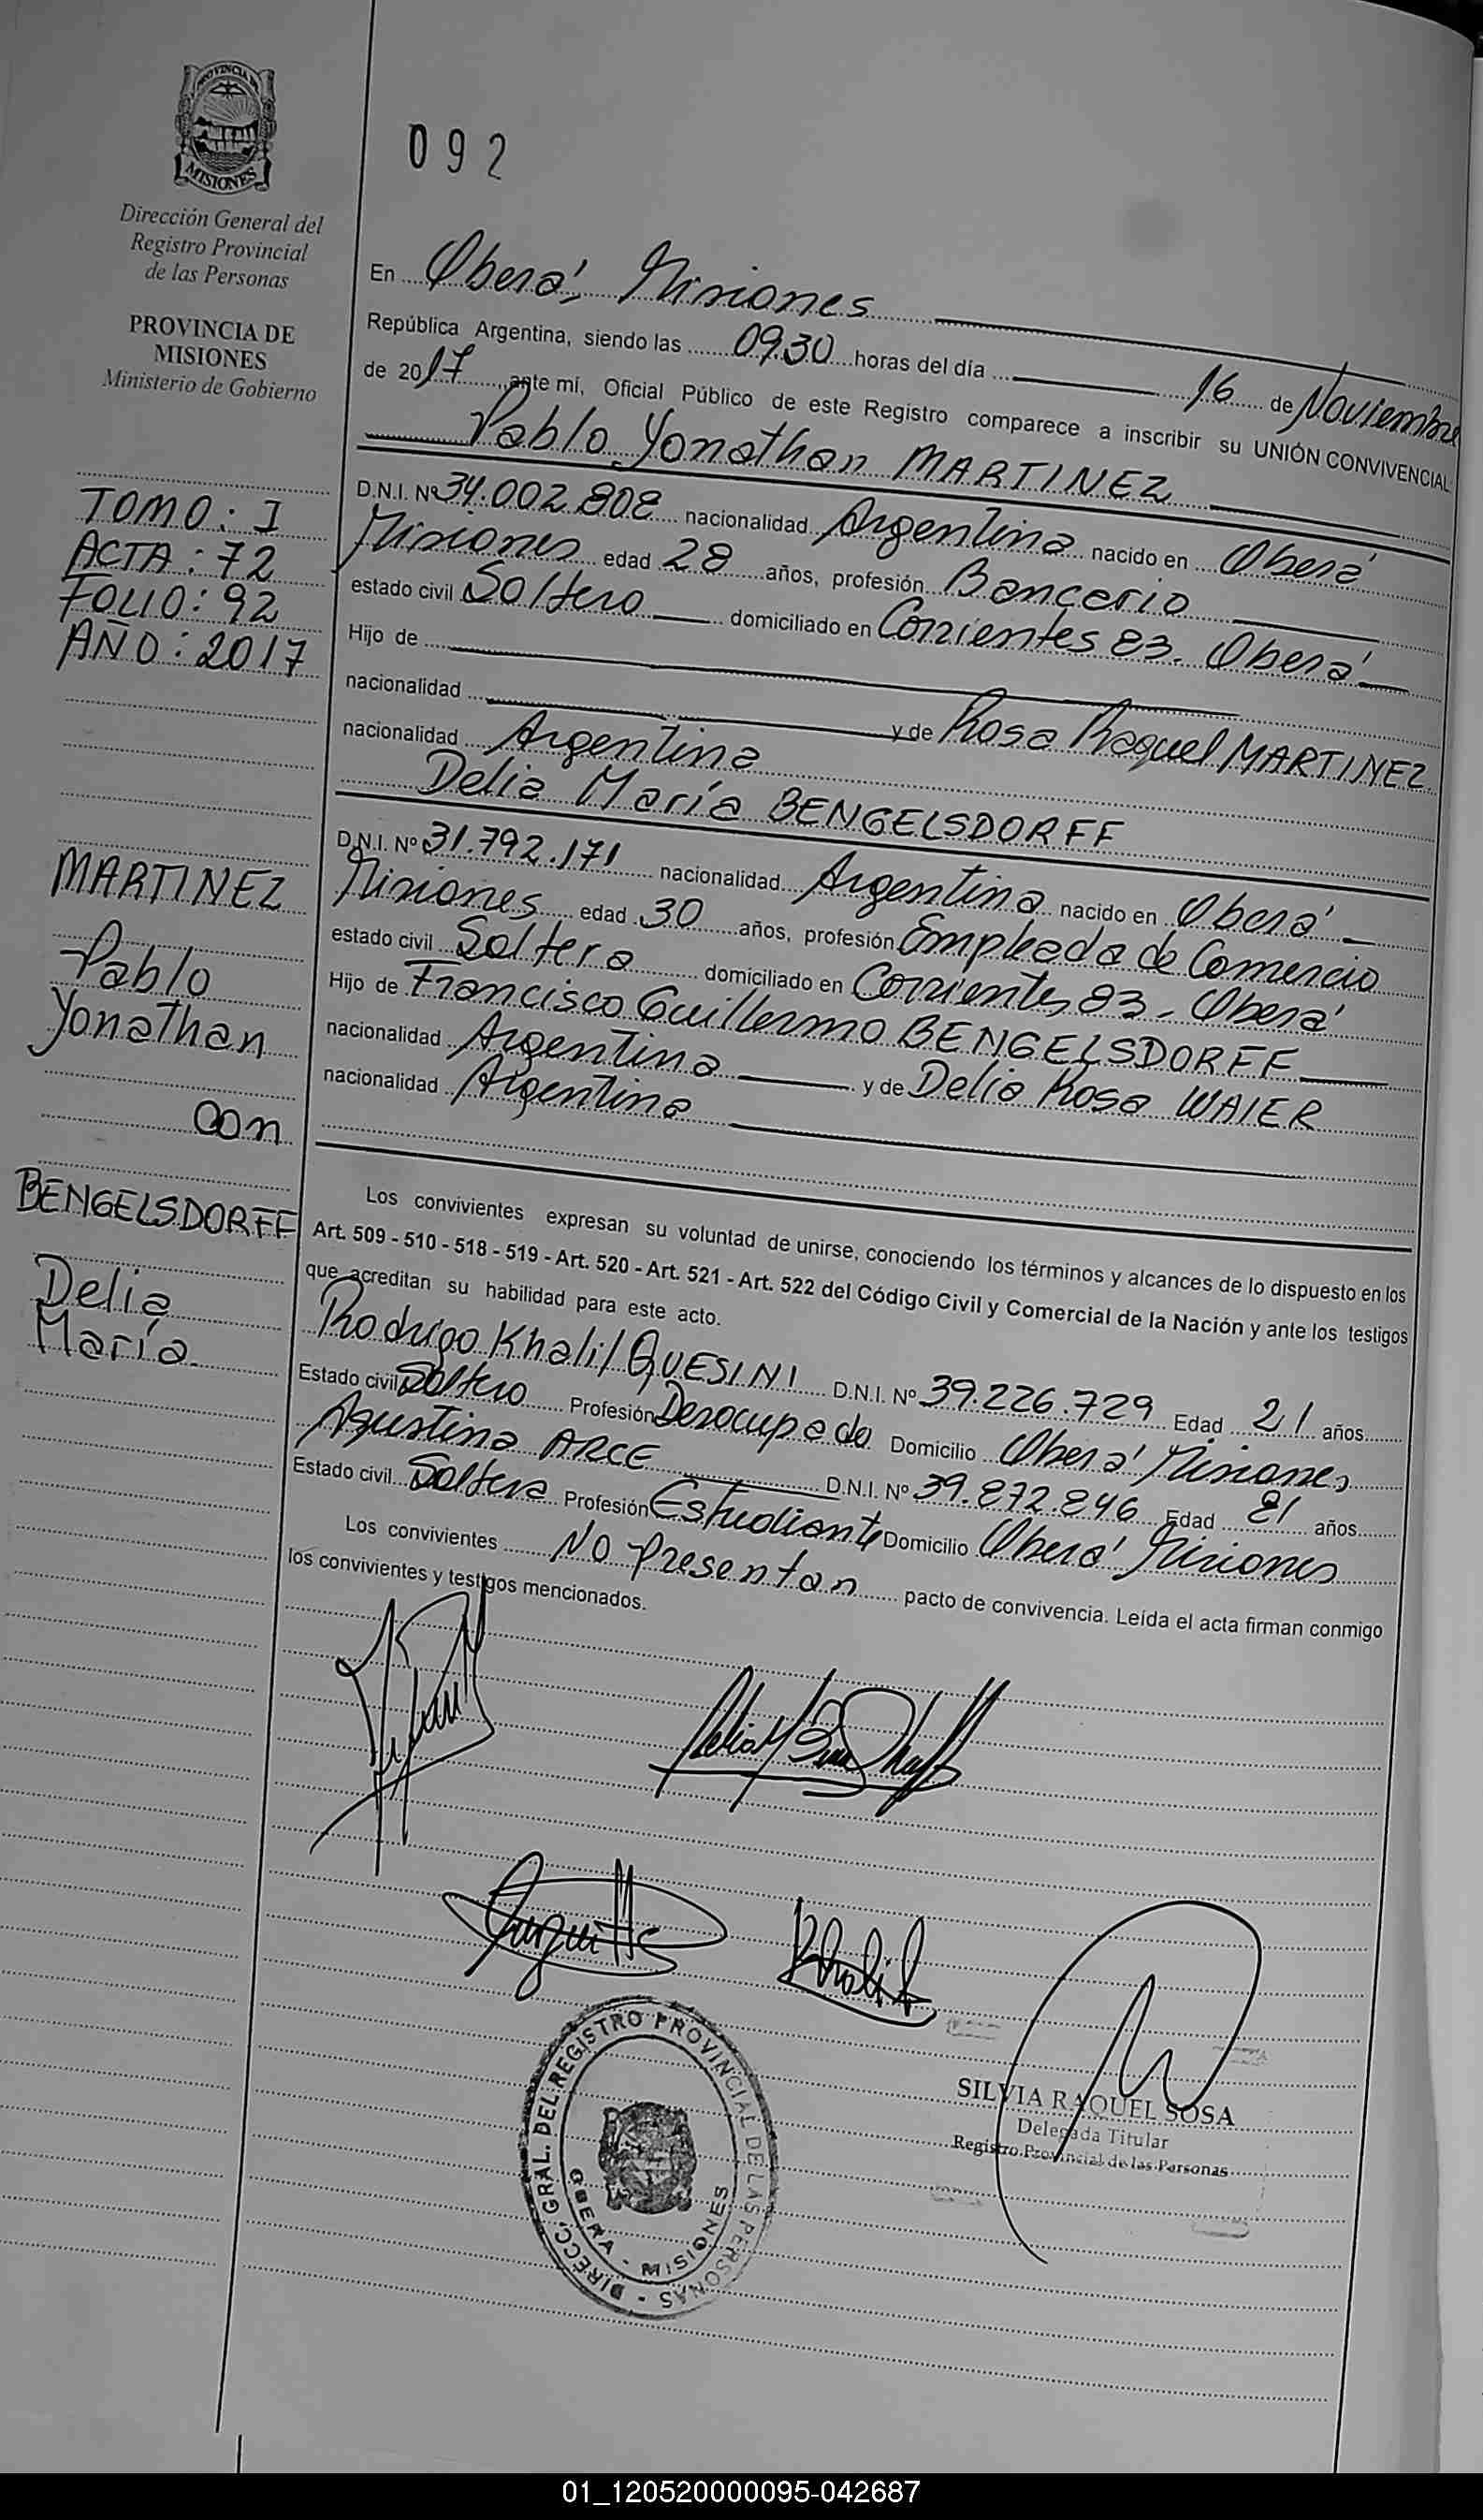 PROVINCIA DE
MISIONES
Dirección General del
Registro Provincial
de las Personas
PROVINCIA DE
MISIONES
Ministerio de Gobierno
TOMO: I
ACTA: 72
FOLIO: 92
AÑO: 2017
MARTINEZ
Pablo
Yonathan
con
BENGELSDORFF
Delia
María
092
En Oberá, Misiones
República Argentina, siendo las 09.30 horas del día 16 de Noviembre
de 2017, ante mí, Oficial Público de este Registro comparece a inscribir su UNIÓN CONVIVENCIAL
Pablo Yonathan MARTINEZ
D.N.I. Nº 34.002.808 nacionalidad Argentina nacido en Oberá
Misiones edad 28 años, profesión Bancario
estado civil Soltero domiciliado en Corrientes 83. Oberá
Hijo de
nacionalidad y de Rosa Raquel MARTINEZ
nacionalidad Argentina
Delia María BENGELSDORFF
D.N.I. Nº 31.792.171 nacionalidad Argentina nacido en Oberá
Misiones edad 30 años, profesión Empleada de Comercio
estado civil Soltera domiciliado en Corrientes 83 - Oberá
Hijo de Francisco Guillermo BENGELSDORFF
nacionalidad Argentina y de Delia Rosa WAIER
nacionalidad Argentina
Los convivientes expresan su voluntad de unirse, conociendo los términos y alcances de lo dispuesto en los
Art. 509 - 510 - 518 - 519 - Art. 520 - Art. 521 - Art. 522 del Código Civil y Comercial de la Nación y ante los testigos
que acreditan su habilidad para este acto.
Rodrigo Khalil QUESINI D.N.I. Nº 39.226.729 Edad 21 años
Estado civil Soltero Profesión Desocupado Domicilio Oberá Misiones
Agustina ARCE D.N.I. Nº 39.872.846 Edad 21 años
Estado civil Soltera Profesión Estudiante Domicilio Oberá Misiones
Los convivientes No presentan pacto de convivencia. Leída el acta firman conmigo
los convivientes y testigos mencionados.
Khalil
DIRECC. GRAL. DEL REGISTRO PROVINCIAL DE LAS PERSONAS -
OBERA - MISIONES
SILVIA RAQUEL SOSA
Delegada Titular
Registro Provincial de las Personas
01_120520000095-042687